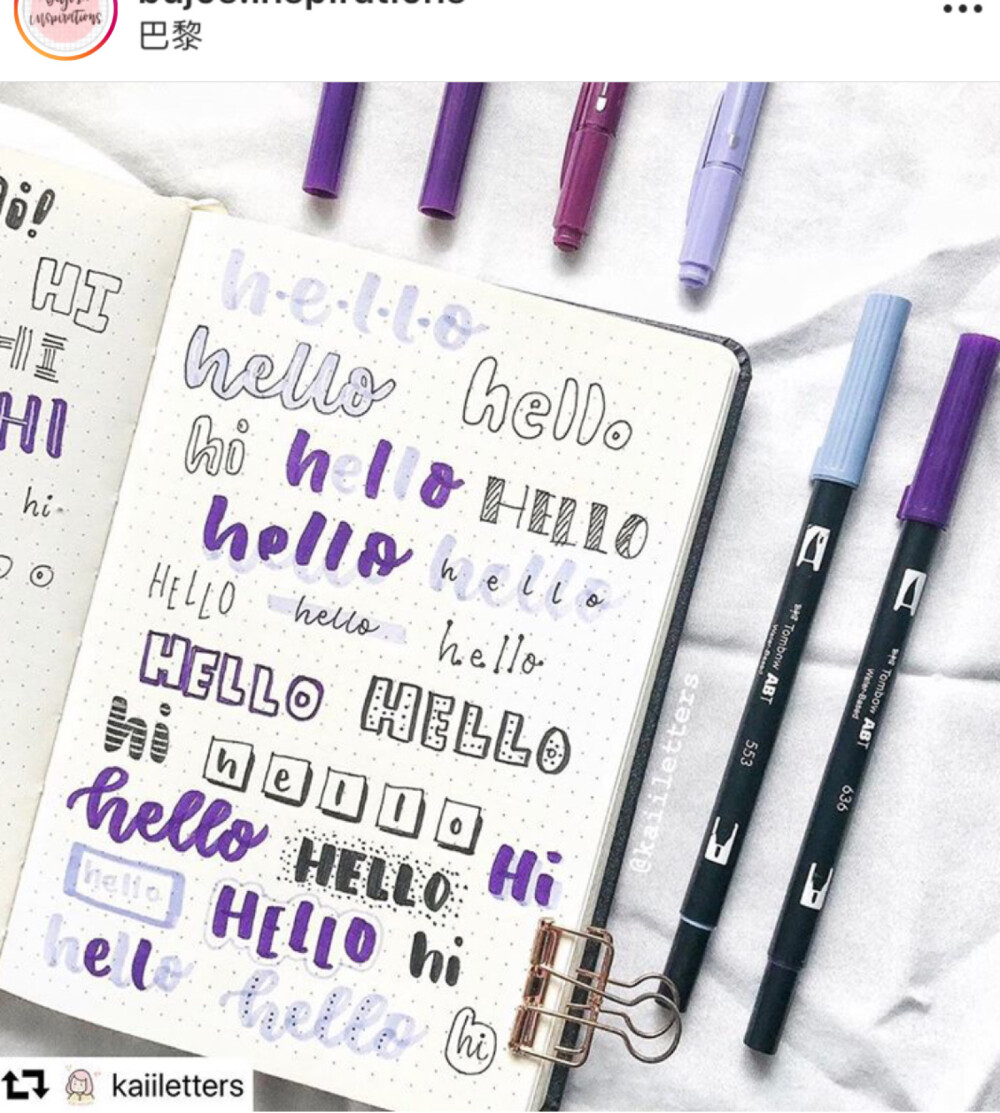 bujoo.inspirations
巴黎
hi!
HI
HI
HI
hi
h·e·l·l·o
hello hello
hi hello HELLO
hello hello
HELLO hello hello
HELLO HELLO
hi hello
hello HELLO Hi
hello HELLO hi
hello hello hi
Tombow ABT
Water-Based
553
Tombow ABT
Water-Based
636
@kaiiletters
kaiiletters